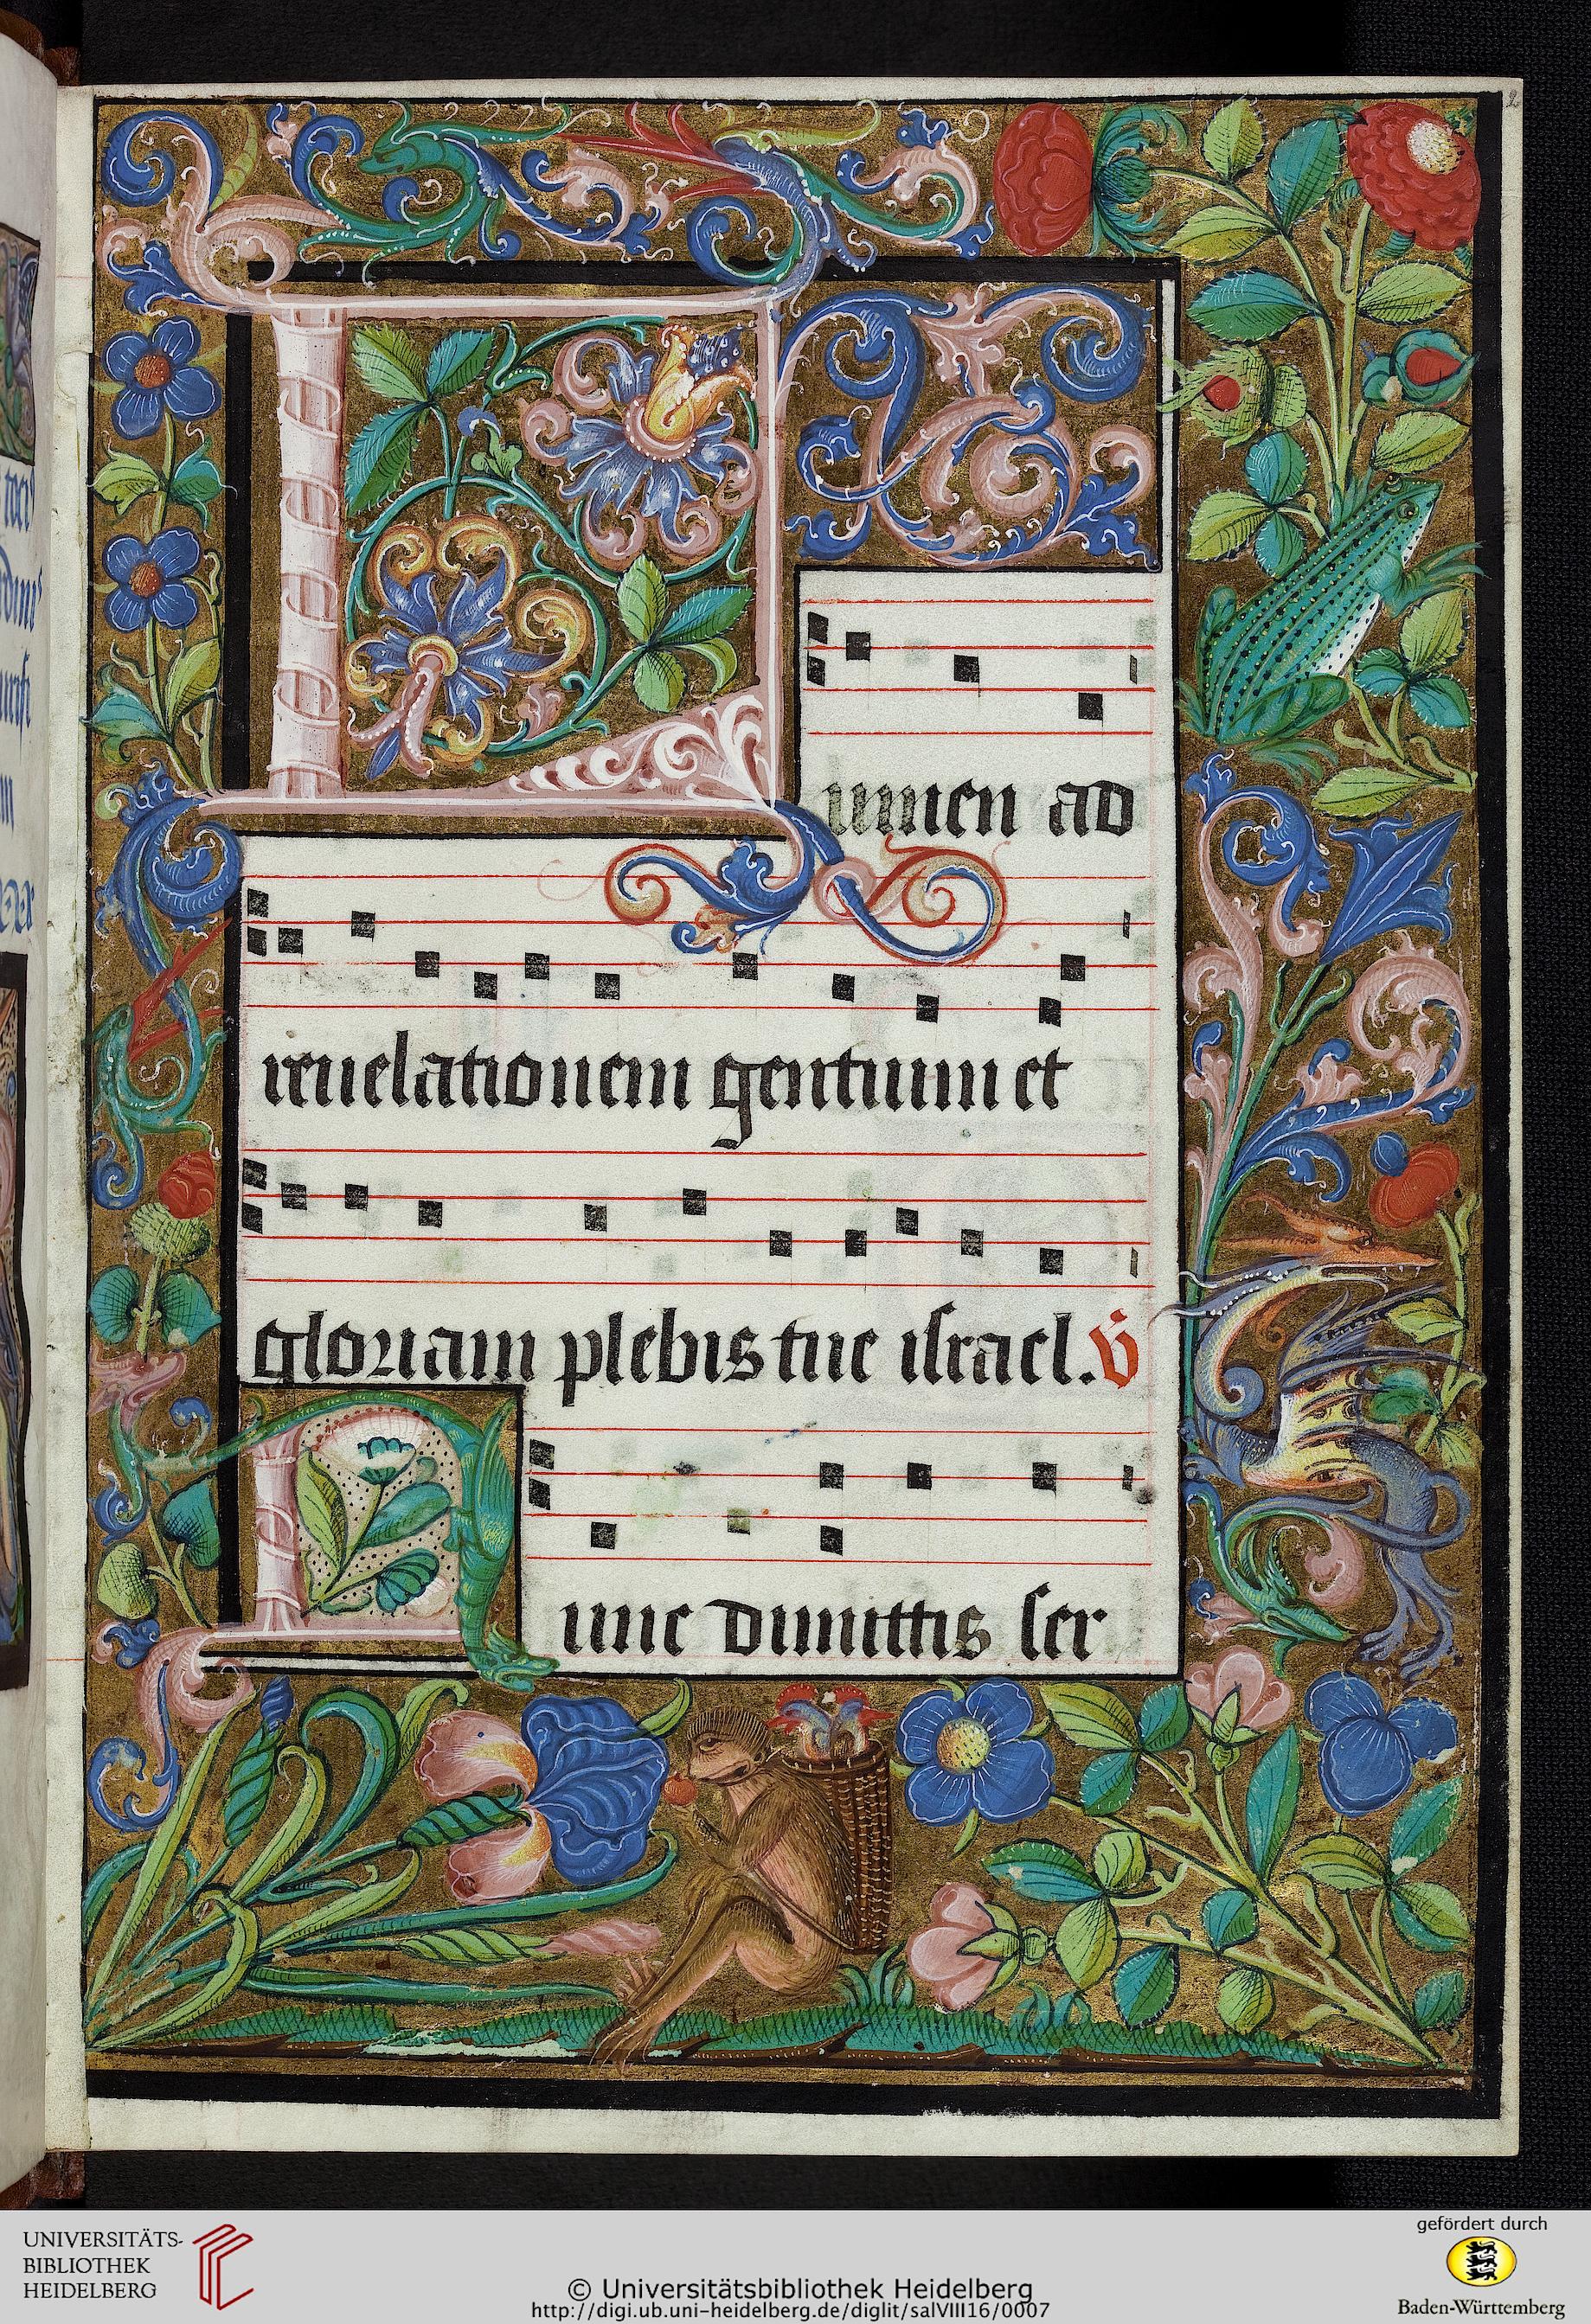 2
Lumen ad
reuelationem gentium et
gloriam plebis tue israel. V
Nunc dimittis ser
UNIVERSITÄTS-
BIBLIOTHEK
HEIDELBERG
© Universitätsbibliothek Heidelberg
http://digi.ub.uni-heidelberg.de/diglit/salVIII16/0007
gefördert durch
Baden-Württemberg